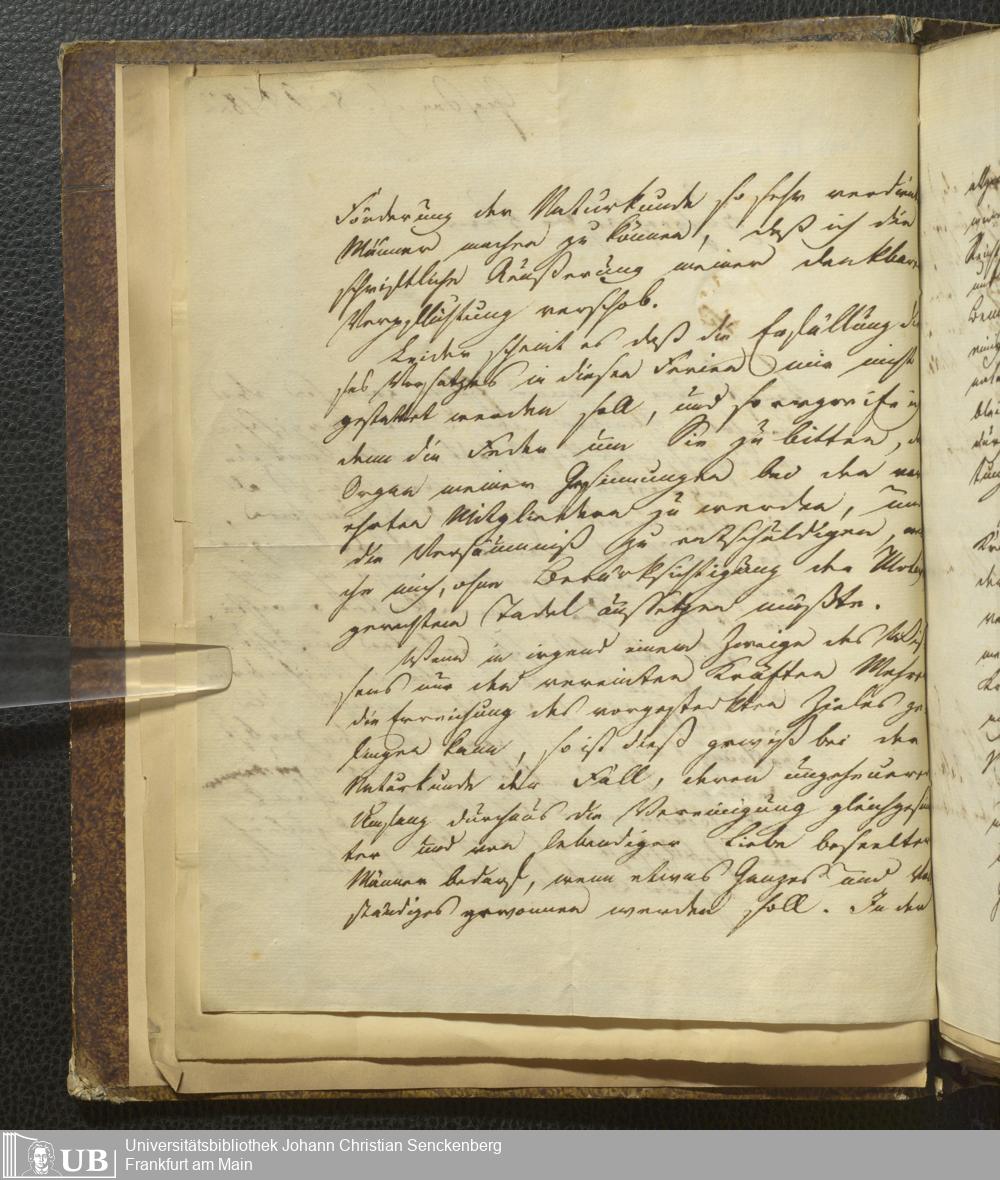 Förderung der Naturkunde so sehr verdien
Männer machen zu können, daß ich die
schriftliche Äußerung meiner dankbar
Verpflichtung verschob.
Leider scheint es daß die Erfüllung die
ses Vorsatzes in diesen Ferien mir nicht
gestattet werden soll, und so ergreife ich
denn die Feder um Sie zu bitten, d
Organ meiner Gesinnungen bei den ver
ehrten Mitgliedern zu werden, und
die Versäumniß zu entschuldigen, wel
che mich, ohne Berücksichtigung der
gerechtem Tadel aussetzen müßte.
Wenn in irgend einem Zweige des Wis
sens nur den vereinten Kräften Mehre
die Erreichung des vorgesteckten Zieles ge
lingen kann, so ist dieß gewiß bei der
Naturkunde der Fall, deren ungeheuer
Umfang durchaus die Vereinigung gleichgesin
ter und von lebendiger Liebe beseelter
Männer bedarf, wenn etwas Ganzes und
ständiges gewonnen werden soll. In den
UB
Universitätsbibliothek Johann Christian Senckenberg
Frankfurt am Main